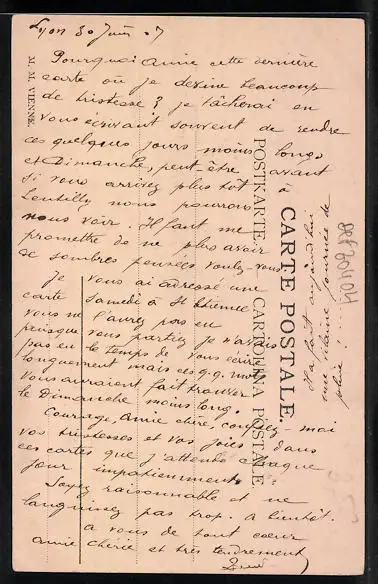 Lyon 30 Juin 07
Pourquoi Amie cette dernière
carte où je devine beaucoup
de tristesse ? je tâcherai en
vous écrivant souvent de rendre
ces quelques jours moins longs
et Dimanche, peut-être avant
si vous arrivez plus tôt à
Lentilly nous pourrons
nous voir. Il faut me
promettre de ne plus avoir
de sombres pensées voulez-vous
Je vous ai adressé une
carte samedi à St Etienne
vous ne l'aurez pas eu
puisque vous partiez je n'avais
pas eu le temps de vous écrire
longuement mais ces q.q. mots
vous auraient fait trouver
le Dimanche moins long.
Courage, Amie chère, confiez-moi
vos tristesses et vos joies dans
ces cartes que j'attends chaque
jour impatiemment.
Soyez raisonnable et ne
languissez pas trop. A bientôt.
à vous de tout coeur
amie chérie et très tendrement
M. M. VIENNE
POSTKARTE. CARTOLINA POSTALE
CARTE POSTALE.
Il a fait aujourd'hui
une vilaine journée de
pluie